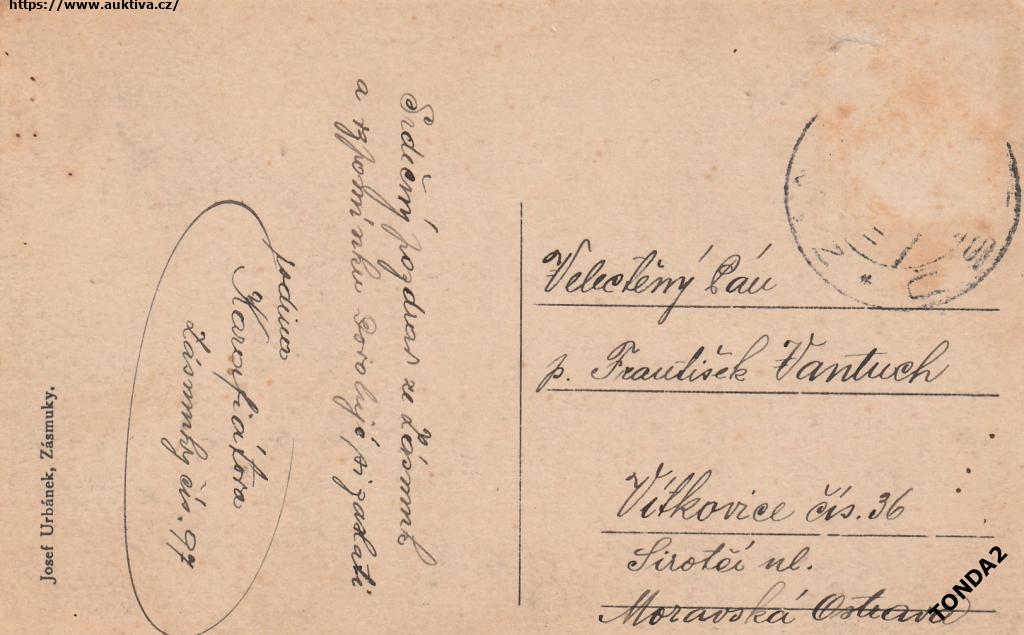 https://www.auktiva.cz/
Srdečný pozdrav ze Zásmuk
a vzpomínku dovolují si zaslati
rodina
Karafiátova
Zásmuky čís. 97
Josef Urbánek, Zásmuky.
Velectěný Pán
p. František Vantuch
Vítkovice čís. 36
Sirotčí ul.
Moravská Ostrava
TONDA2